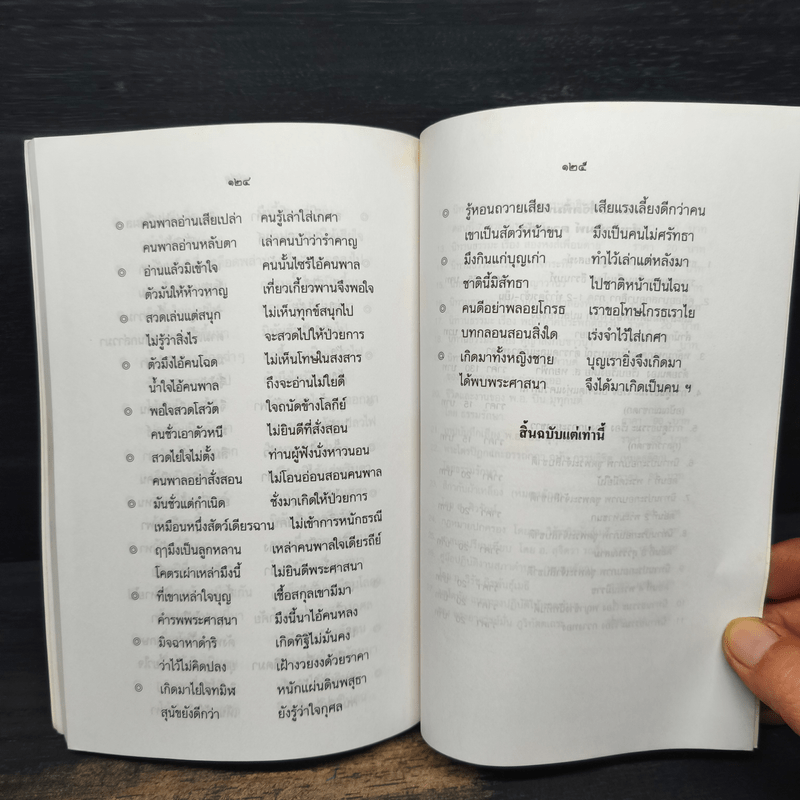 ๑๒๔
๏ คนพาลอ่านเสียเปล่า คนรู้เล่าใส่เกศา
คนพาลอ่านหลับตา เล่าคนบ้าว่ารำคาญ
๏ อ่านแล้วมิเข้าใจ คนนั้นไซร้ไอ้คนพาล
ตัวมันให้ห้าวหาญ เที่ยวเกี้ยวพานจึงพอใจ
๏ สวดเล่นแต่สนุก ไม่เห็นทุกข์สนุกไป
ไม่รู้ว่าสิ่งไร จะสวดไปให้ป่วยการ
๏ ตัวมึงไอ้คนโฉด ไม่เห็นโทษในสงสาร
น้ำใจไอ้คนพาล ถึงจะอ่านไม่ใยดี
๏ พอใจสวดโสวัด ใจถนัดข้างโลกีย์
คนชั่วเอาตัวหนี ไม่ยินดีที่สั่งสอน
๏ สวดไยใจไม่ตั้ง ท่านผู้ฟังนั่งหาวนอน
คนพาลอย่าสั่งสอน ไม่โอนอ่อนสอนคนพาล
๏ มันชั่วแต่กำเนิด ชั่งมาเกิดให้ป่วยการ
เหมือนหนึ่งสัตว์เดียรฉาน ไม่เข้าการหนักธรณี
๏ ฤๅมึงเป็นลูกหลาน เหล่าคนพาลใจเดียรถีย์
โคตรเผ่าเหล่ามึงนี้ ไม่ยินดีพระศาสนา
๏ ที่เขาเหล่าใจบุญ เชื้อสกุลเขามีมา
คำรพพระศาสนา มึงนี้นาไอ้คนหลง
๏ มิจฉาหาดำริ เกิดทิฐิไม่มั่นคง
ว่าไว้ไม่คิดปลง เฝ้างวยงงด้วยราคา
๏ เกิดมาไยใจทมิฬ หนักแผ่นดินพสุธา
สุนัขยังดีกว่า ยังรู้ว่าใจกุศล
๑๒๕
๏ รู้หอนถวายเสียง เสียแรงเลี้ยงดีกว่าคน
เขาเป็นสัตว์หน้าขน มึงเป็นคนไม่ศรัทธา
๏ มึงกินแก่บุญเก่า ทำไว้เล่าแต่หลังมา
ชาตินี้มิสัทธา ไปชาติหน้าเป็นไฉน
๏ คนดีอย่าพลอยโกรธ เราขอโทษโกรธเราไย
บทกลอนสอนสิ่งใด เร่งจำไว้ใส่เกศา
๏ เกิดมาทั้งหญิงชาย บุญเรายิ่งจึงเกิดมา
ได้พบพระศาสนา จึงได้มาเกิดเป็นคน ฯ
สิ้นฉบับแต่เท่านี้